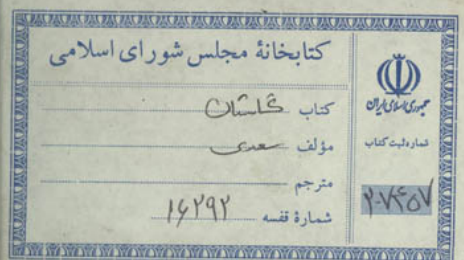 کتابخانهٔ مجلس شورای اسلامی
کتاب گلستان
مؤلف سعدی
مترجم
شمارهٔ قفسه ۱۶۲۹۲
جمهوری اسلامی ایران
شماره ثبت کتاب
۲۰۷۴۵۷